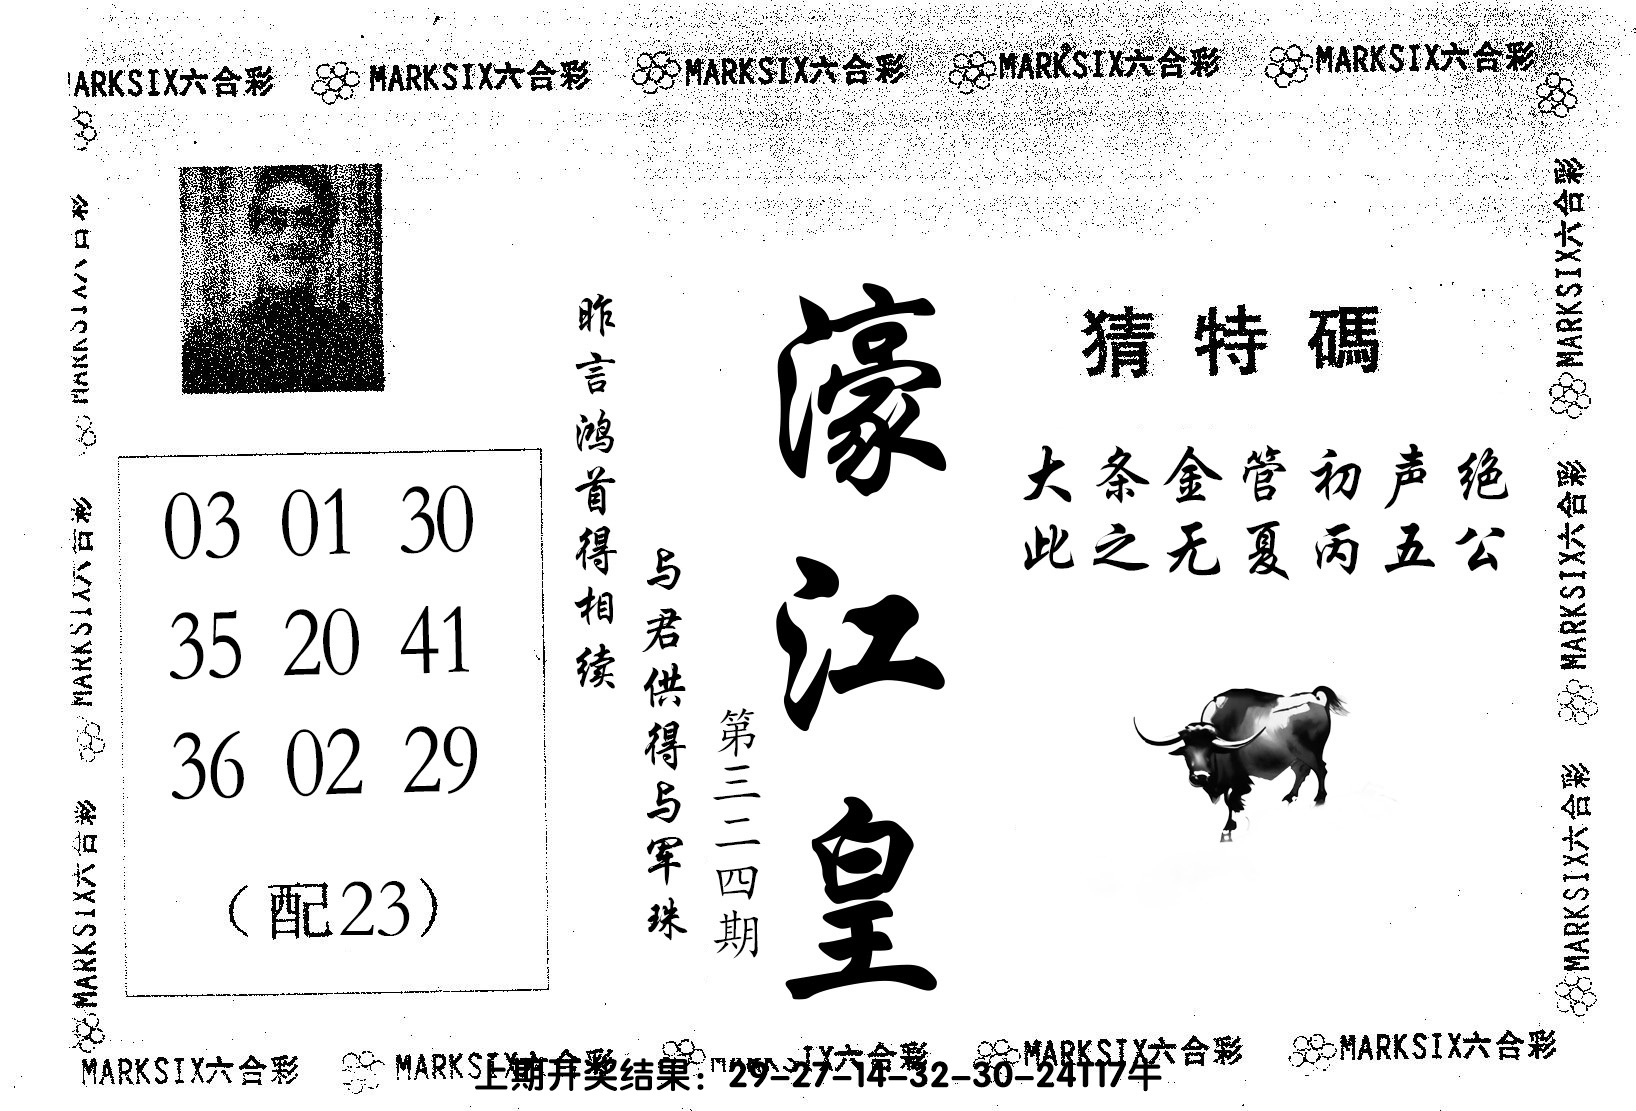 MARKSIX六合彩 MARKSIX六合彩 MARKSIX六合彩 MARKSIX六合彩 MARKSIX六合彩
猜特碼
大条金管初声绝
此之无夏丙五公
濠江皇
第三二四期
昨言鸿首得相续
与君供得与军珠
03 01 30
35 20 41
36 02 29
（配23）
MARKSIX六合彩
MARKSIX六合彩
MARKSIX六合彩
MARKSIX六合彩
MARKSIX六合彩
MARKSIX六合彩
MARKSIX六合彩 MARKSIX六合彩 MARKSIX六合彩 MARKSIX六合彩 MARKSIX六合彩
上期开奖结果：29-27-14-32-30-24T17牛